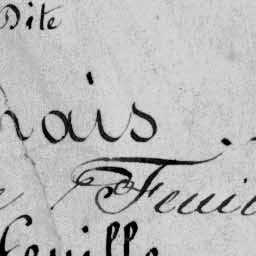 Dite
nais .
Feuil
feuille